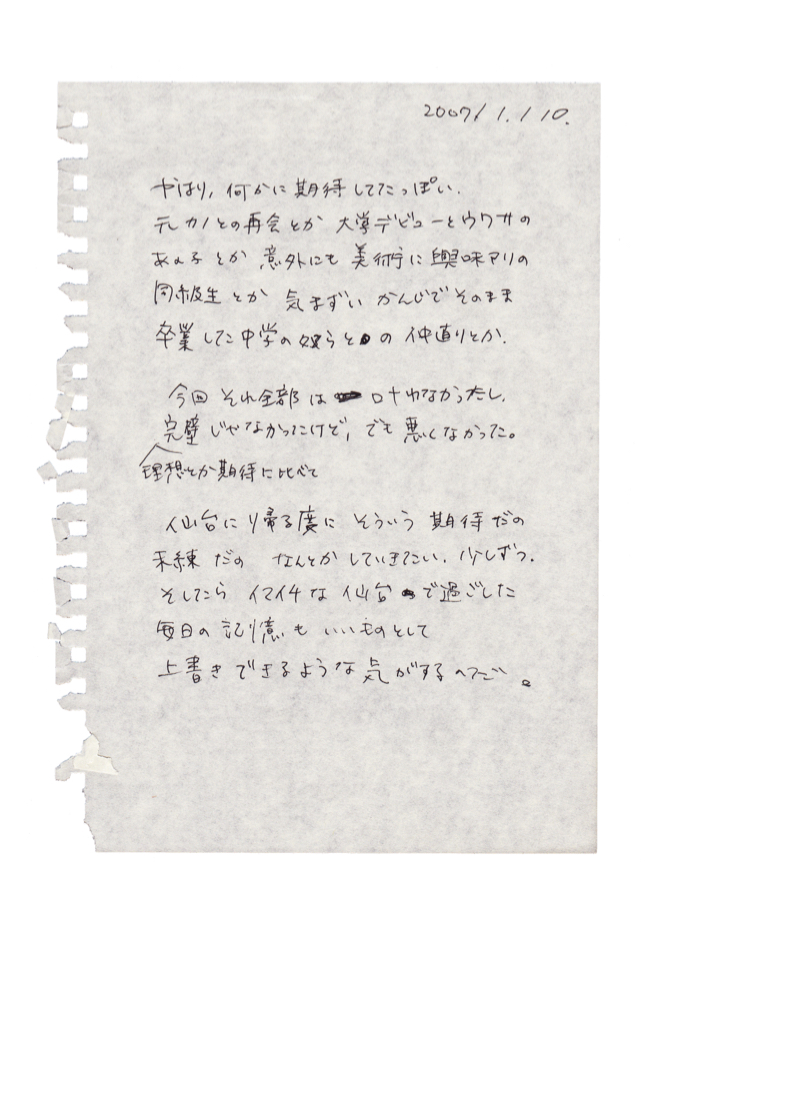 2007/1/10.
やはり、何かに期待してたっぽい.
元カノとの再会とか 大学デビューとウワサの
あの子とか 意外にも 美術に興味アリの
同級生とか 気まずい かんじでそのまま
卒業した中学の奴らとの 仲直りとか.
今回 それ全部は 叶わなかったし.
完璧じゃなかったけど, でも 悪くなかった。
理想とか期待に比べて
仙台に帰る度に そういう 期待だの
未練だの なんとかしていきたい. 少しずつ.
そしたら イマイチな 仙台で過ごした
毎日の記憶も いいものとして
上書きできるような気がする